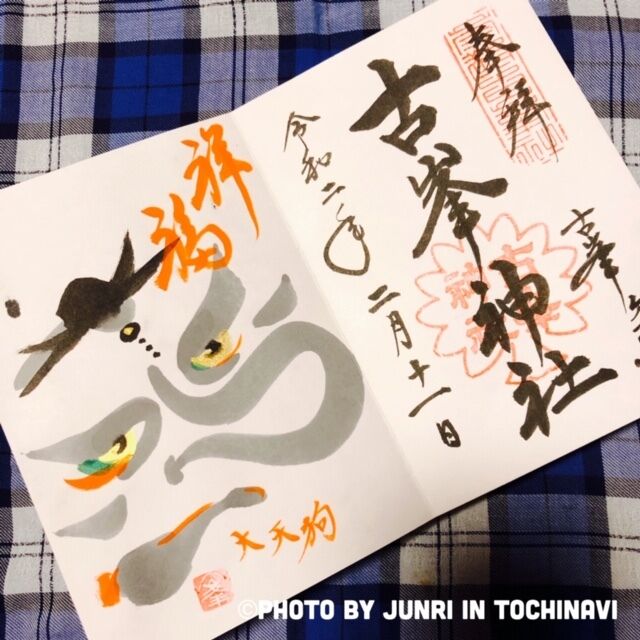 奉拝
古峯神社
令和二年二月十一日
祥福
大天狗
©PHOTO BY JUNRI IN TOCHINAVI